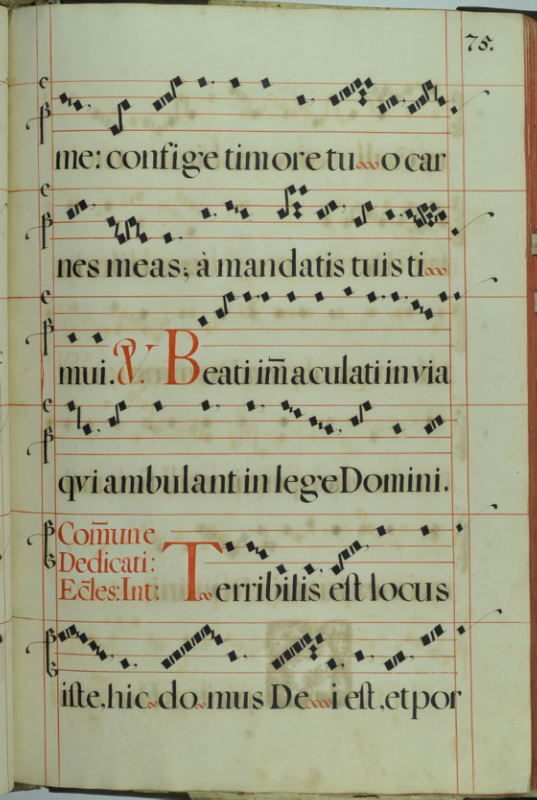 75.
me: confige timore tu o car
nes meas; à mandatis tuis ti
mui. V. Beati im̄aculati in via
qvi ambulant in lege Domini.
Com̄une
Dedicati:
Ec̄les: Int:
Terribilis est locus
iste, hic do mus De i est, et por